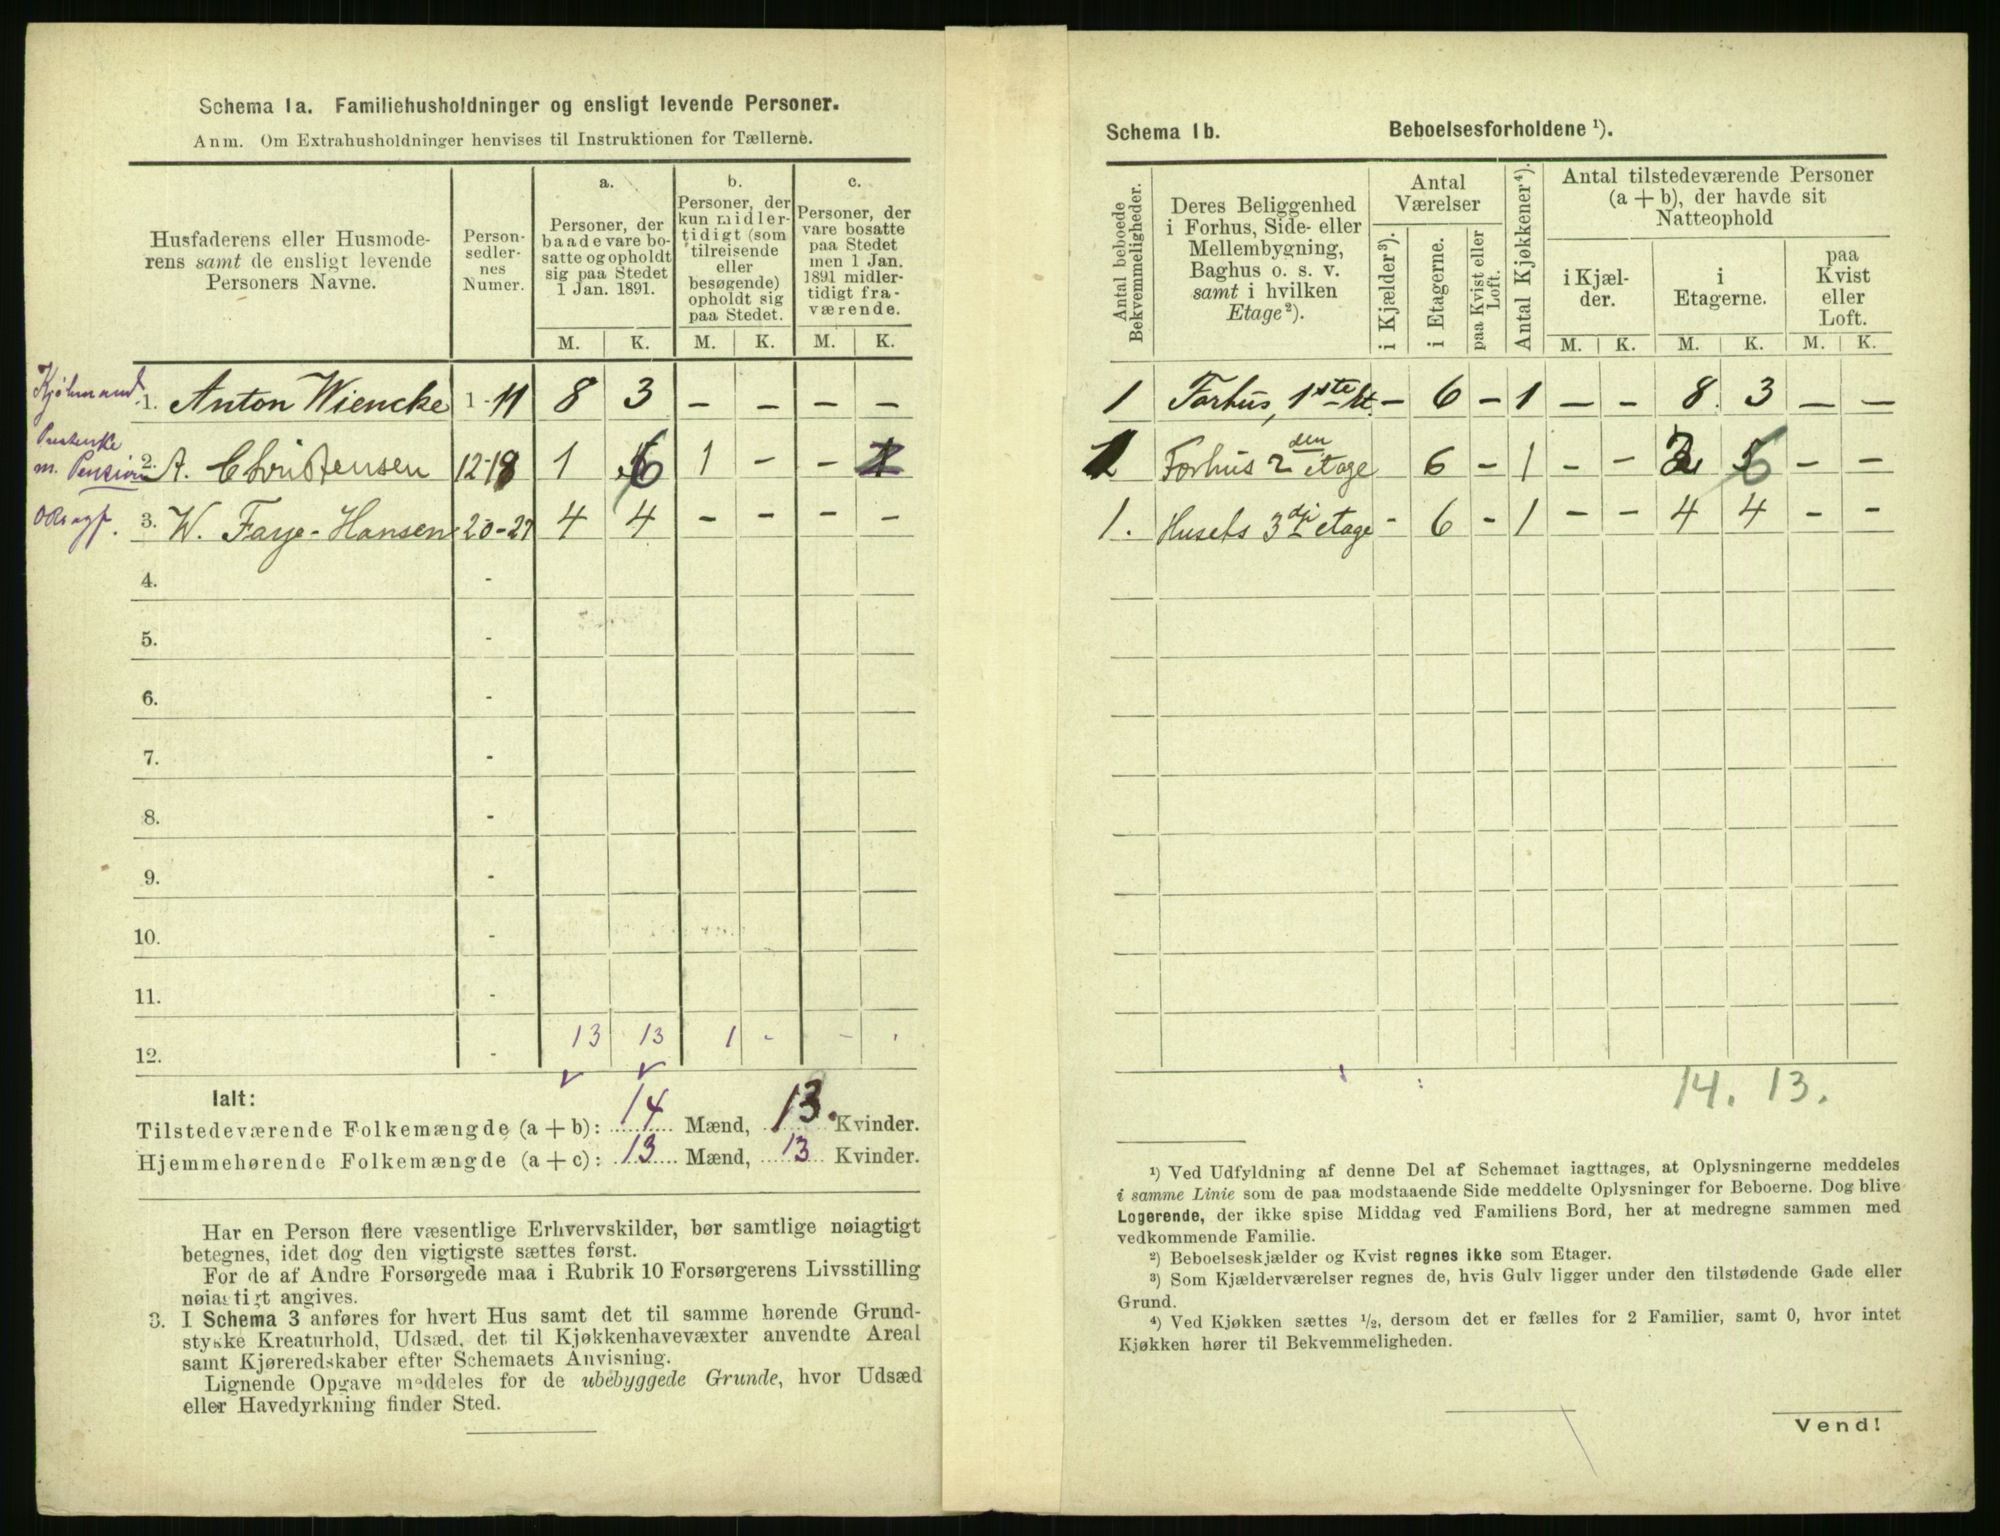 Schema 1a. Familiehusholdninger og ensligt levende Personer.
Anm. Om Extrahusholdninger henvises til Instruktionen for Tællerne.
Husfaderens eller Husmode-
rens samt de ensligt levende
Personers Navne.
Person-
sedler-
nes
Numer.
a.
Personer, der
baade vare bo-
satte og opholdt
sig paa Stedet
1 Jan. 1891.
b.
Personer, der
kun midler-
tidigt (som
tilreisende
eller
besøgende)
opholdt sig
paa Stedet.
c.
Personer, der
vare bosatte
paa Stedet
men 1 Jan.
1891 midler-
tidigt fra-
værende.
M. K. M. K. M. K.
Kjøbmand 1. Anton Wiencke 1-11 8 3 - - - -
m. Pension 2. A. Christensen 12-18 1 6 1 - -
3. W. Faye-Hansen 20-27 4 4 - - - -
4. -
5. -
6. -
7. -
8. -
9. -
10. -
11. -
12. - 13 13 1 - -
Ialt:
Tilstedeværende Folkemængde (a + b): 14 Mænd, 13. Kvinder.
Hjemmehørende Folkemængde (a + c): 13 Mænd, 13 Kvinder.
Har en Person flere væsentlige Erhvervskilder, bør samtlige nøiagtigt
betegnes, idet dog den vigtigste sættes først.
For de af Andre Forsørgede maa i Rubrik 10 Forsørgerens Livsstilling
nøiagtigt angives.
3. I Schema 3 anføres for hvert Hus samt det til samme hørende Grund-
stykke Kreaturhold, Udsæd, det til Kjøkkenhavevæxter anvendte Areal
samt Kjøreredskaber efter Schemaets Anvisning.
Lignende Opgave meddeles for de ubebyggede Grunde, hvor Udsæd
eller Havedyrkning finder Sted.
Schema 1b. Beboelsesforholdene ¹).
Antal beboede
Bekvemmeligheder.
Deres Beliggenhed
i Forhus, Side- eller
Mellembygning,
Baghus o. s. v.
samt i hvilken
Etage²).
Antal
Værelser
i Kjælder³).
i Etagerne.
paa Kvist eller
Loft.
Antal Kjøkkener⁴).
Antal tilstedeværende Personer
(a + b), der havde sit
Natteophold
i Kjæl-
der.
i
Etagerne.
paa
Kvist
eller
Loft.
M. K. M. K. M. K.
1 Forhus, 1ste Et. - 6 - 1 - - 8 3 - -
1 Forhus 2den etage 6 - 1 - - 2 6 - -
1. Husets 3dje etage - 6 - 1 - - 4 4 - -
14. 13.
¹) Ved Udfyldning af denne Del af Schemaet iagttages, at Oplysningerne meddeles
i samme Linie som de paa modstaaende Side meddelte Oplysninger for Beboerne. Dog blive
Logerende, der ikke spise Middag ved Familiens Bord, her at medregne sammen med
vedkommende Familie.
²) Beboelseskjælder og Kvist regnes ikke som Etager.
³) Som Kjælderværelser regnes de, hvis Gulv ligger under den tilstødende Gade eller
Grund.
⁴) Ved Kjøkken sættes ½, dersom det er fælles for 2 Familier, samt 0, hvor intet
Kjøkken hører til Bekvemmeligheden.
Vend!